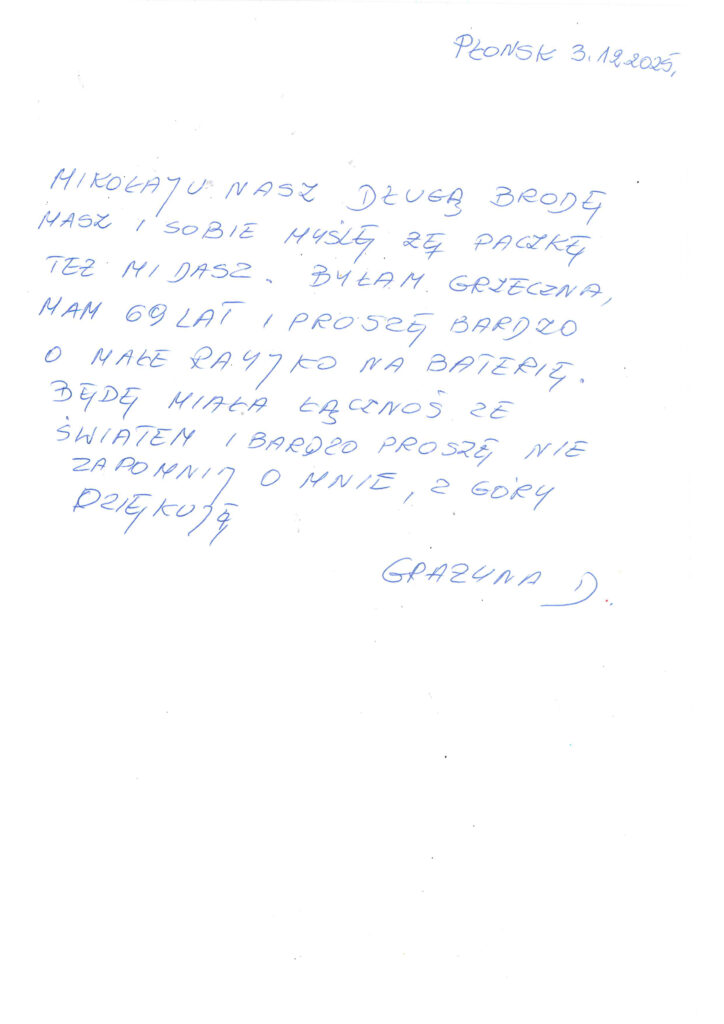 PŁOŃSK 3.12.2025,
MIKOŁAJU NASZ DŁUGĄ BRODĘ
MASZ I SOBIE MYŚLĘ ŻĘ PACZKĘ
TEŻ MI DASZ. BYŁAM GRZECZNA,
MAM 69 LAT I PROSZĘ BARDZO
O MAŁE RAYJKO NA BATERIĘ.
BĘDĘ MIAŁA ŁĄCZNOŚ ZE
ŚWIATEM I BARDZO PROSZĘ NIE
ZAPOMNIJ O MNIE, Z GÓRY
DZIĘKUJĘ
GRAŻYNA D.